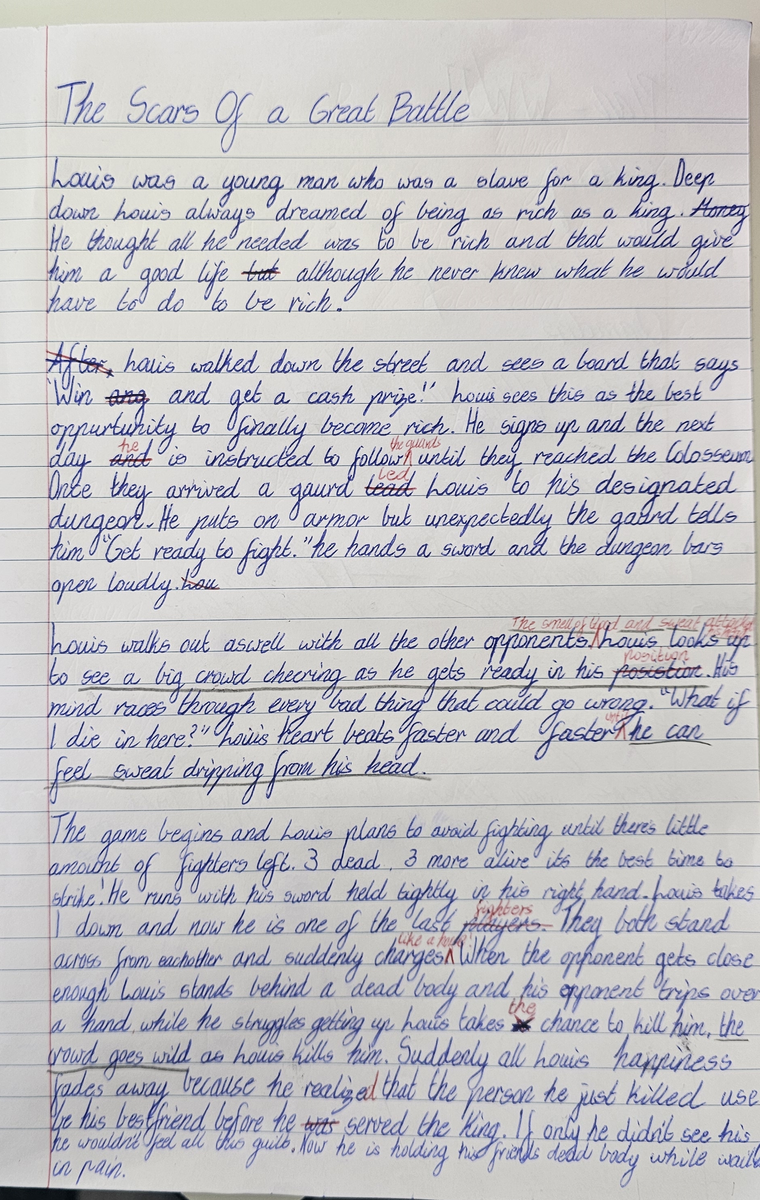 The Scars Of a Great Battle
Louis was a young man who was a slave for a king. Deep
down Louis always dreamed of being as rich as a king. Money
He thought all he needed was to be rich and that would give
him a good life but although he never knew what he would
have to do to be rich.
After, Louis walked down the street and sees a board that says
"Win ang and get a cash prize!" Louis sees this as the best
oppurtunity to finally become rich. He signs up and the next
he the guards
day and is instructed to follow until they reached the Colosseum
led
Once they arrived a gaurd lead Louis to his designated
dungeon. He puts on armor but unexpectedly the gaurd tells
him "Get ready to fight." he hands a sword and the dungeon bars
open loudly. Lou
The smell of blood and sweat
Louis walks out aswell with all the other opponents. Louis looks up
position
to see a big crowd cheering as he gets ready in his posistion. His
mind races through every bad thing that could go wrong. "What if
I die in here?" Louis heart beats faster and faster he can
feel sweat dripping from his head.
The game begins and Louis plans to avoid fighting until there's little
amount of fighters left. 3 dead, 3 more alive its the best time to
strike! He runs with his sword held tightly in his right hand. Louis takes
fighters
1 down and now he is one of the last players. They both stand
like a
across from eachother and suddenly charges. When the opponent gets close
enough Louis stands behind a dead body and his opponent trips over
the
a hand, while he struggles getting up Louis takes chance to kill him, the
crowd goes wild as Louis kills him. Suddenly all Louis happiness
fades away because he realized that the person he just killed use
be his bestfriend before he was served the king. If only he didn't see his
he wouldn't feel all this guilt. Now he is holding his friends dead body while
in pain.